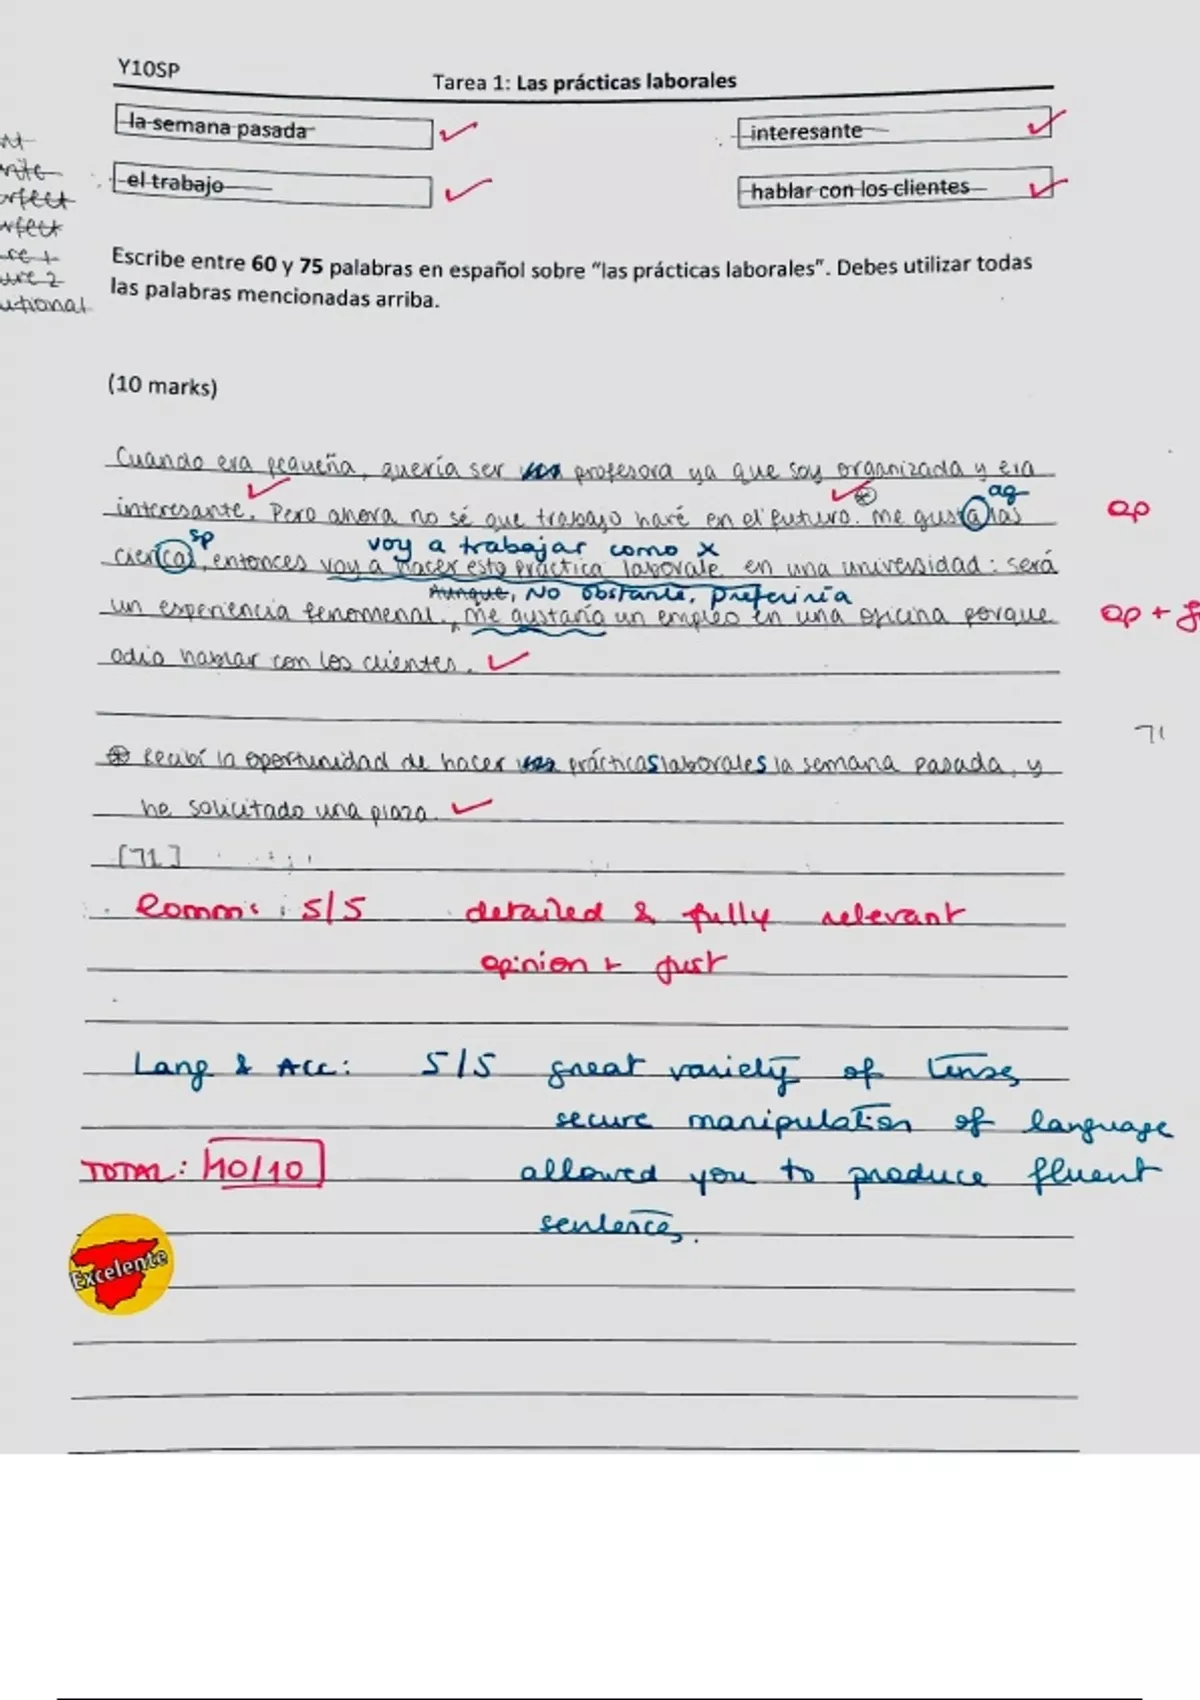 Y10SP
Tarea 1: Las prácticas laborales
la semana pasada
interesante
el trabajo
hablar con los clientes
Escribe entre 60 y 75 palabras en español sobre “las prácticas laborales”. Debes utilizar todas
las palabras mencionadas arriba.
(10 marks)
Cuando era pequeña, quería ser profesora ya que soy organizada y era
ag
interesante. Pero ahora no sé que trabajo haré en el futuro. me gusta las
op
sp voy a trabajar como x
ciencas, entonces voy a hacer esta práctica laborale en una universidad: será
Aunque, No obstante, preferiría
un experiencia fenomenal., me gustaría un empleo en una oficina porque
op +
odio hablar con los clientes.
71
Recibí la oportunidad de hacer prácticas laborales la semana pasada, y
he solicitado una plaza.
[71]
Comm: 5/5 detailed & fully relevant
opinion + just
Lang & Acc: 5/5 great variety of tenses,
secure manipulation of language
TOTAL: 10/10 allowed you to produce fluent
sentences.
Excelente